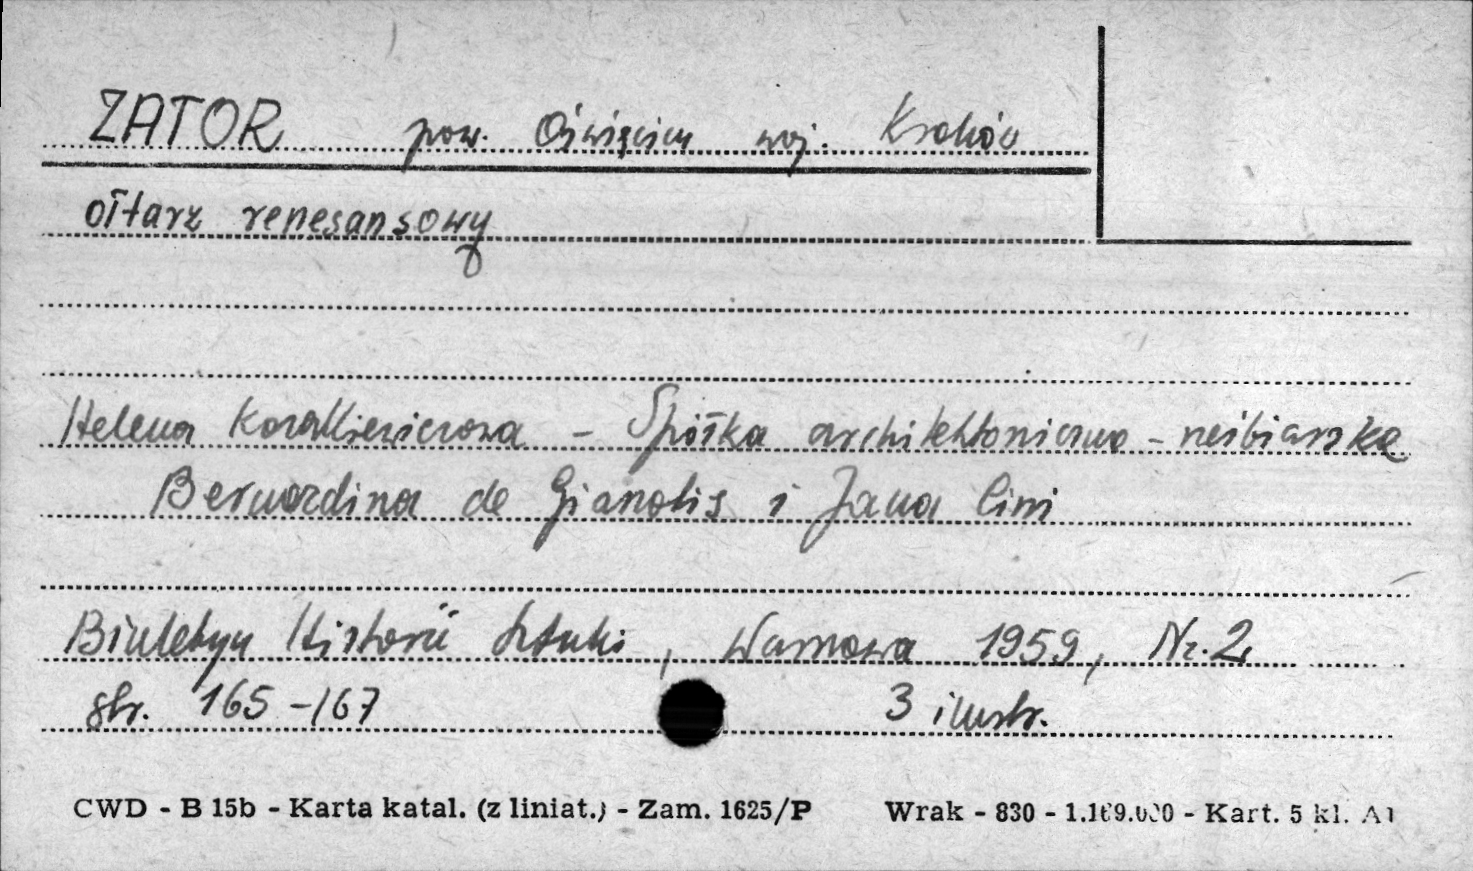 ZATOR pow. Oświęcim woj. Kraków
ołtarz renesansowy
Helena Kozakiewiczowa - Spółka architektoniczno - rzeźbiarska
Bernardina de Gianotis i Jana Cini
Biuletyn Historii Sztuki, Warszawa 1959, Nr. 2,
str. 165-167 3 ilustr.
CWD - B 15b - Karta katal. (z liniat.) - Zam. 1625/P Wrak - 830 - 1.169.000 - Kart. 5 kl. A1